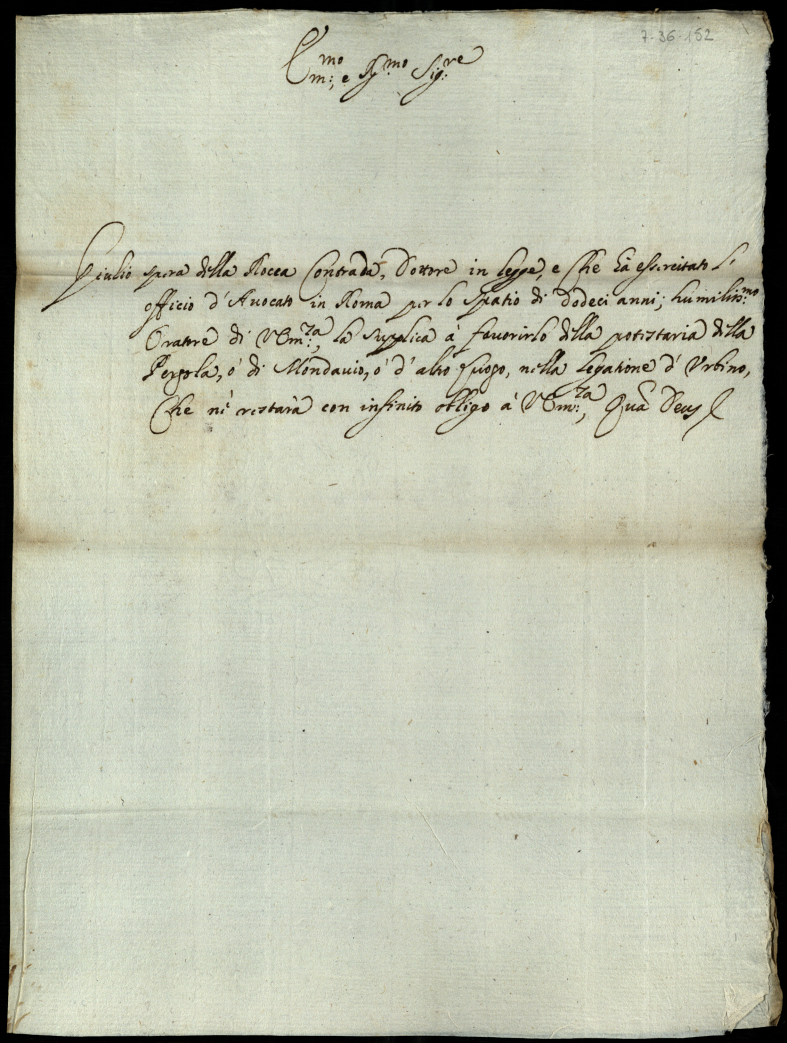 7-36-152
Em:mo e R.mo Sig:re
Giulio spera della Rocca Contrada, Dottore in legge, e che hà essercitato l'
officio d'Auocato in Roma per lo spatio di dodeci anni; humiliss:mo
Oratore di VEm:za, la supplica à fauorirlo della potestaria della
Pergola, ò di Mondauio, ò d'altro luogo, nella legatione d'Vrbino,
che nè restarà con infinito obligo à VEm:za, Quā Deus